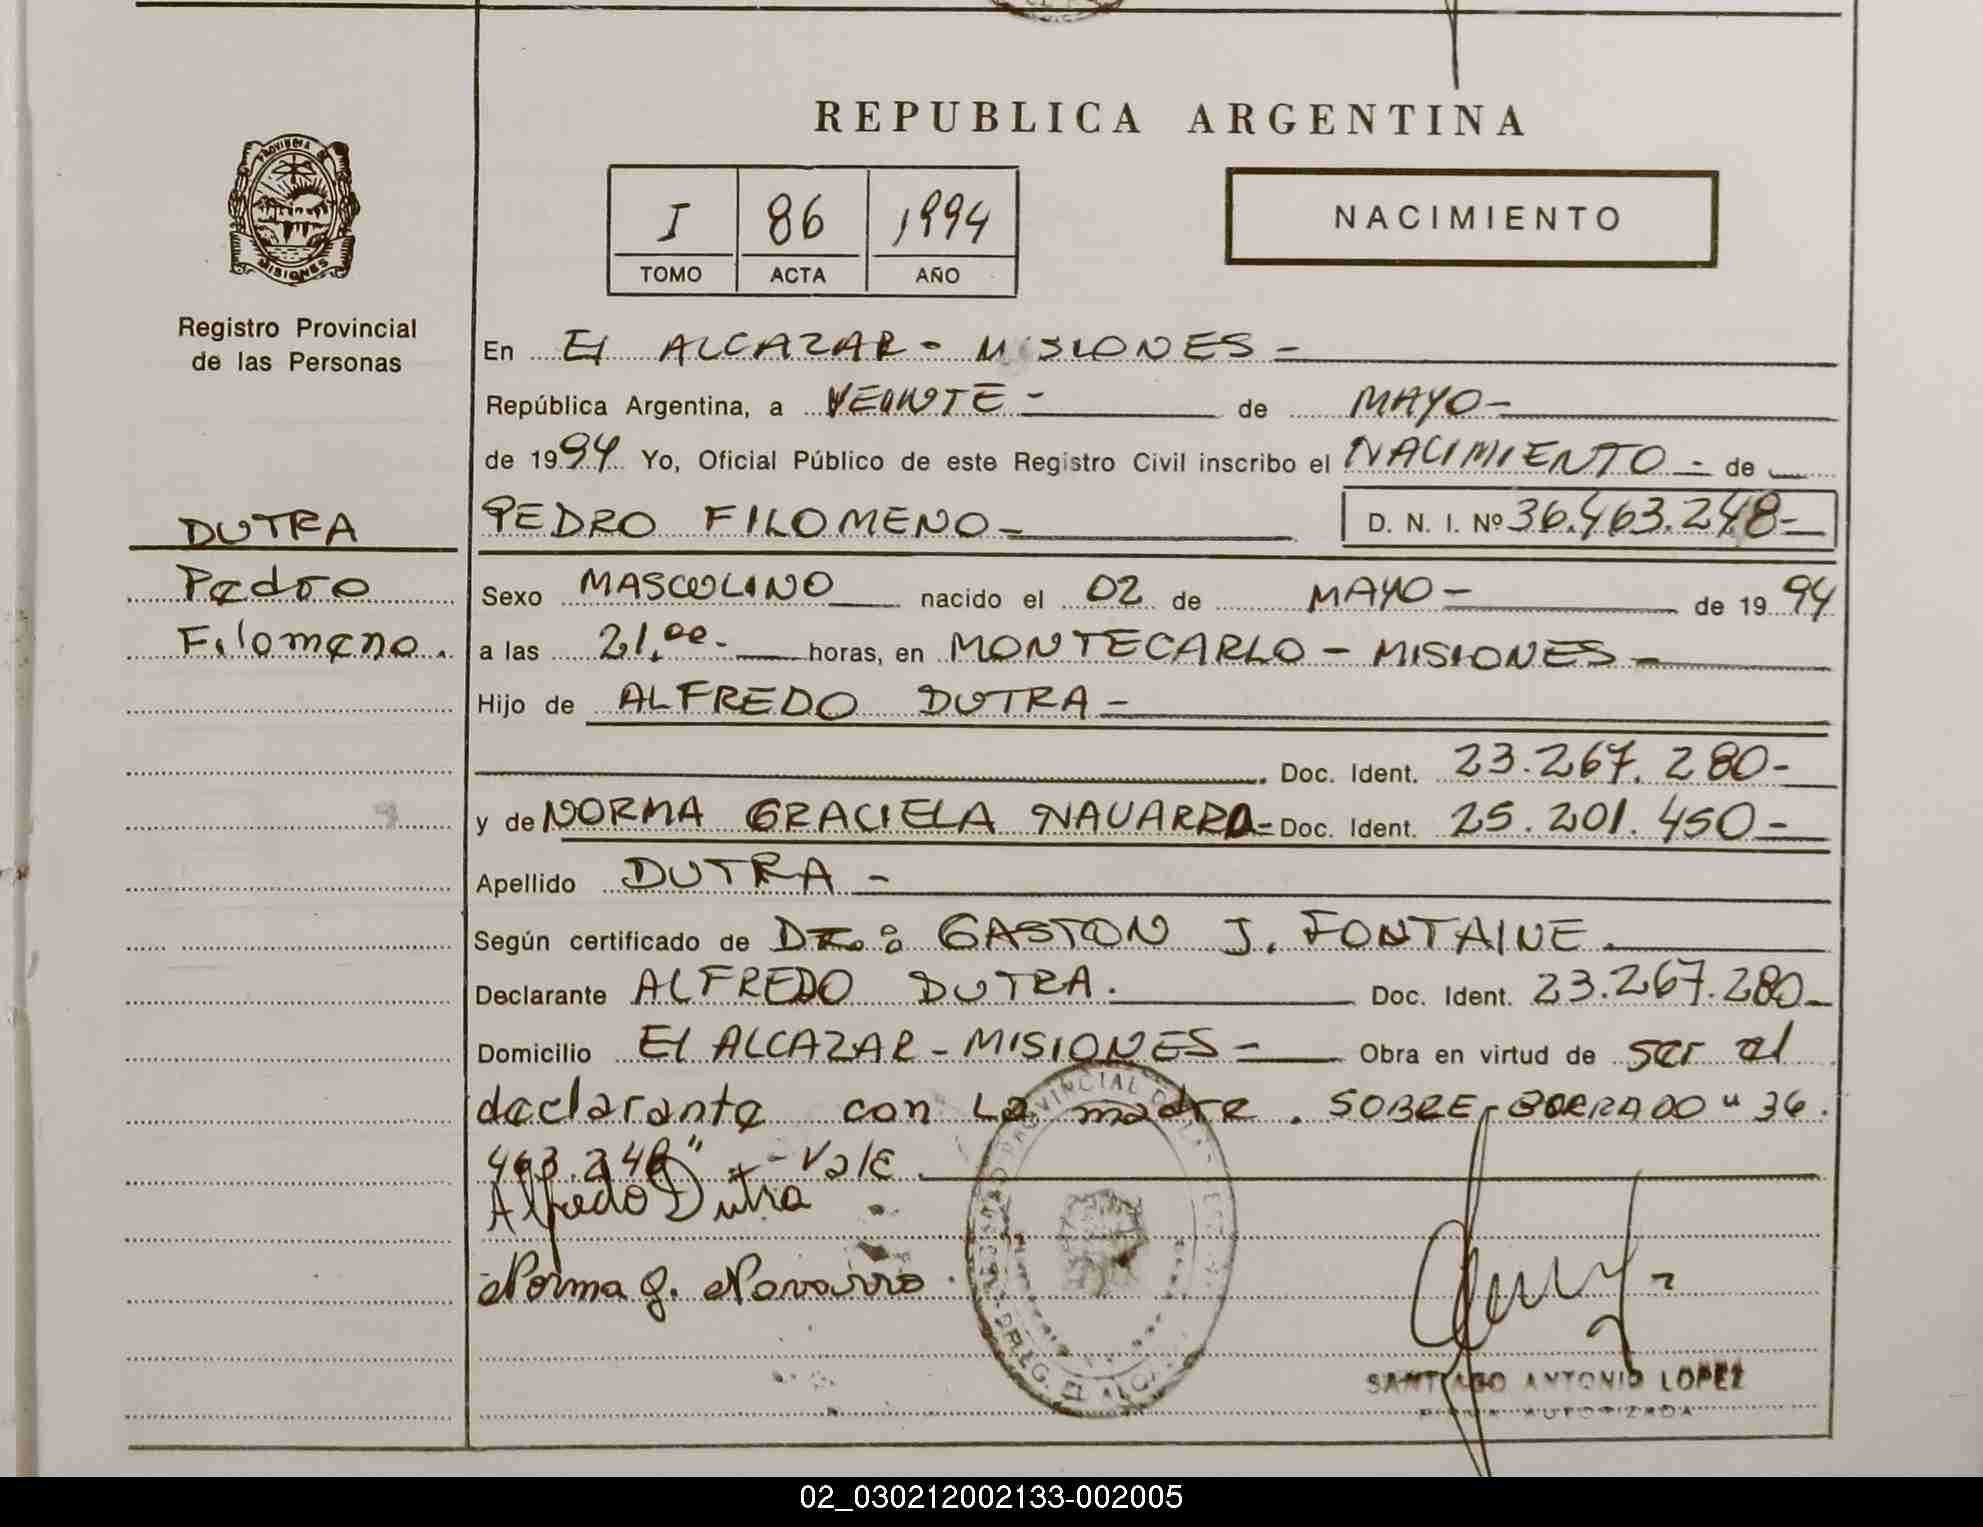 REPUBLICA ARGENTINA
PROVINCIA DE
MISIONES
Registro Provincial
de las Personas
I 86 1994
TOMO ACTA AÑO
NACIMIENTO
En El ALCAZAR - MISIONES -
República Argentina, a VEINTE - de MAYO -
de 1994 Yo, Oficial Público de este Registro Civil inscribo el NACIMIENTO - de
DUTRA
Pedro
Filomeno.
PEDRO FILOMENO - D. N. I. Nº 36.463.248-
Sexo MASCULINO nacido el 02 de MAYO - de 1994
a las 21,oo- horas, en MONTECARLO - MISIONES -
Hijo de ALFREDO DUTRA -
Doc. Ident. 23.267.280-
y de NORMA GRACIELA NAVARRO= Doc. Ident. 25.201.450-
Apellido DUTRA -
Según certificado de DR.: GASTON J. FONTAINE.
Declarante ALFREDO DUTRA. Doc. Ident. 23.267.280-
Domicilio El ALCAZAR - MISIONES - Obra en virtud de ser el
declarante con La madre. SOBRE-BORRADO "36.
463.248" - Vale.
Alfredo Dutra
Norma g. Navarro.
SANTIAGO ANTONIO LOPEZ
FIRMA AUTORIZADA
02_030212002133-002005